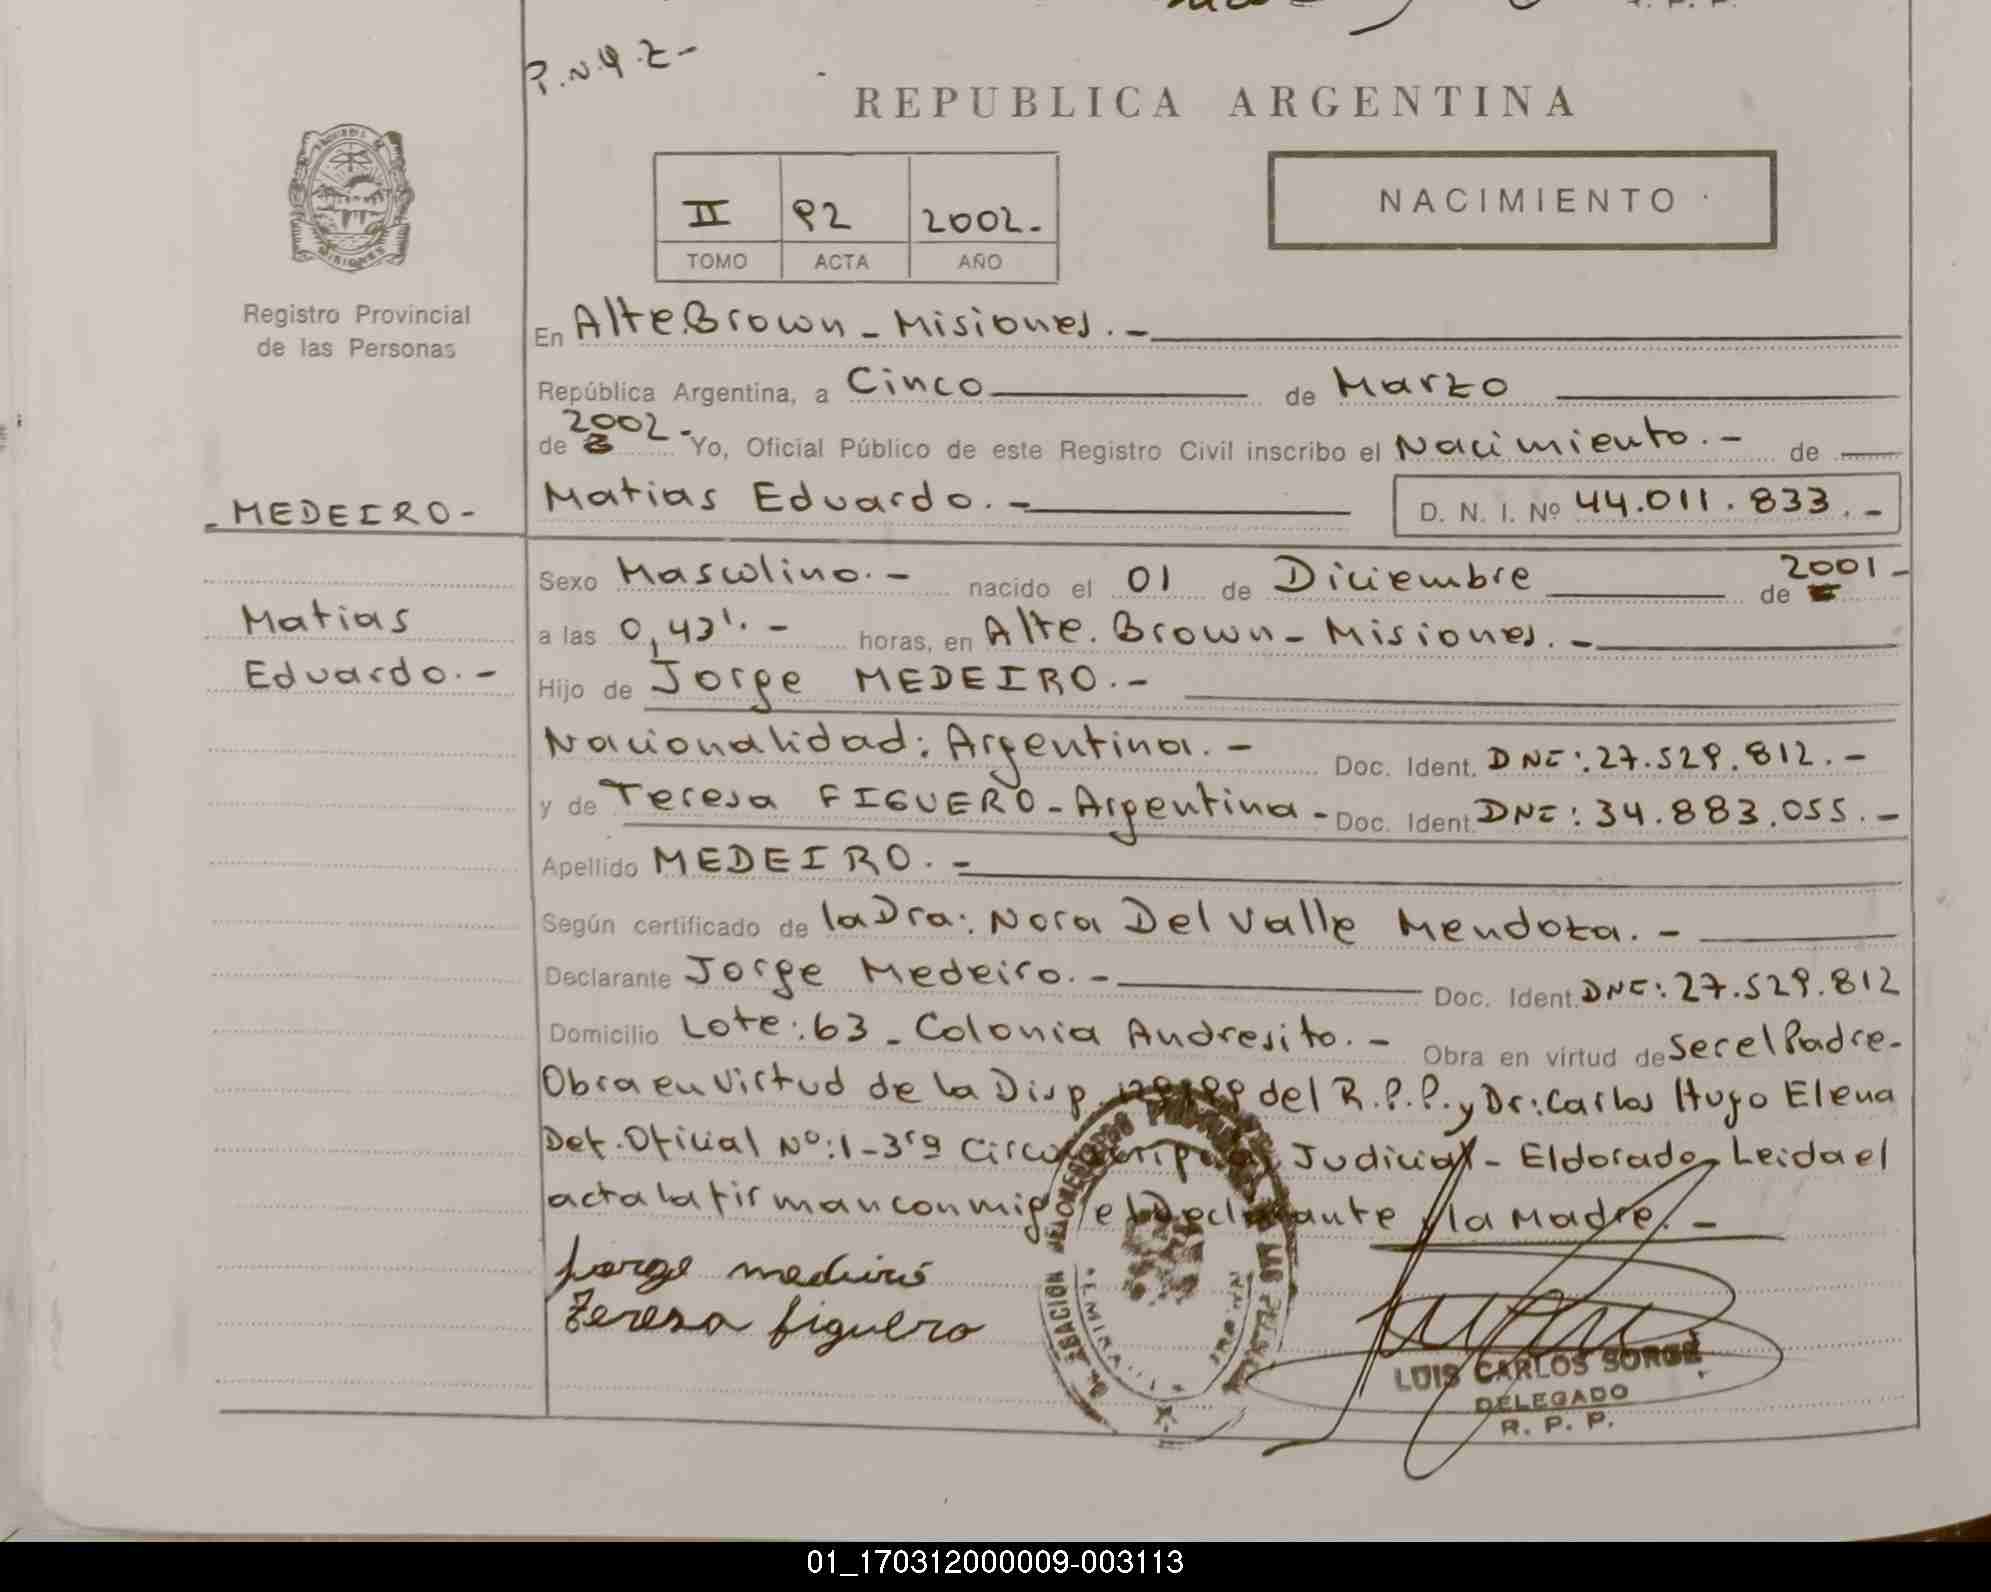 P.N.Y.Z-
REPUBLICA ARGENTINA
MISIONES
II 92 2002.-
TOMO ACTA AÑO
NACIMIENTO
Registro Provincial
de las Personas
En Alte.Brown - Misiones.-
República Argentina, a Cinco de Marzo
de 2002.- Yo, Oficial Público de este Registro Civil inscribo el Nacimiento.- de
MEDEIRO-
Matias Eduardo.- D. N. I. Nº 44.011.833.-
Sexo Masculino.- nacido el 01 de Diciembre de 2001-
Matias
a las 0,43'.- horas, en Alte. Brown - Misiones.-
Eduardo.-
Hijo de Jorge MEDEIRO.-
Nacionalidad: Argentina.- Doc. Ident. DNI: 27.529.812.-
y de Teresa FIGUERO - Argentina - Doc. Ident. DNI: 34.883.055.-
Apellido MEDEIRO.-
Según certificado de la Dra: Nora Del Valle Mendoza.-
Declarante Jorge Medeiro.- Doc. Ident. DNI: 27.529.812
Domicilio Lote: 63 - Colonia Andresito.- Obra en virtud de Ser el Padre-
Obra en Virtud de la Disp. del R.P.P. y Dr: Carlos Hugo Elena
Def. Oficial Nº: 1 - 3ra Circunscripción Judicial - Eldorado. Leida el
acta la firman conmigo el Declarante y la Madre.-
Jorge medeiro
Teresa figuero
LUIS CARLOS SORGE
DELEGADO
R. P. P.
01_170312000009-003113